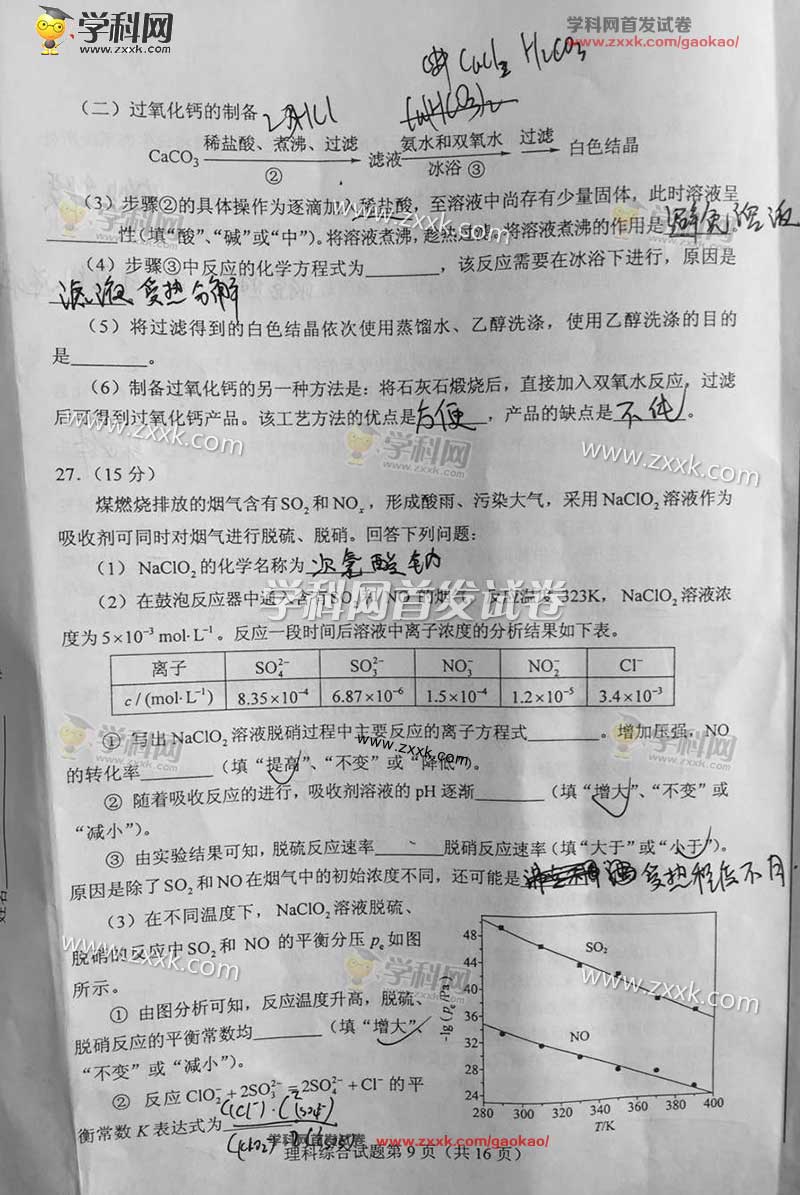 学科网
www.zxxk.com
学科网首发试卷
www.zxxk.com/gaokao/
CaCl₂ H₂CO₃
（二）过氧化钙的制备 2HCl
CaCO₃ 稀盐酸、煮沸、过滤 ② 滤液 氨水和双氧水 冰浴 ③ 过滤 白色结晶
（3）步骤②的具体操作为逐滴加入稀盐酸，至溶液中尚存有少量固体，此时溶液呈
________性（填“酸”、“碱”或“中”）。将溶液煮沸，趁热过滤。将溶液煮沸的作用是避免溶液
（4）步骤③中反应的化学方程式为________，该反应需要在冰浴下进行，原因是
滤液受热分解
（5）将过滤得到的白色结晶依次使用蒸馏水、乙醇洗涤，使用乙醇洗涤的目的
是________。
（6）制备过氧化钙的另一种方法是：将石灰石煅烧后，直接加入双氧水反应，过滤
后可得到过氧化钙产品。该工艺方法的优点是方便，产品的缺点是不纯。
www.zxxk.com
学科网
www.zxxk.com
27.（15 分）
煤燃烧排放的烟气含有SO₂和NOₓ，形成酸雨、污染大气，采用NaClO₂溶液作为
吸收剂可同时对烟气进行脱硫、脱硝。回答下列问题：
（1）NaClO₂的化学名称为次氯酸钠
学科网首发试卷
（2）在鼓泡反应器中通入含有SO₂和NO的烟气，反应温度323K，NaClO₂溶液浓
度为5×10⁻³ mol·L⁻¹。反应一段时间后溶液中离子浓度的分析结果如下表。
离子 SO₄²⁻ SO₃²⁻ NO₃⁻ NO₂⁻ Cl⁻
c/(mol·L⁻¹) 8.35×10⁻⁴ 6.87×10⁻⁶ 1.5×10⁻⁴ 1.2×10⁻⁵ 3.4×10⁻³
① 写出NaClO₂溶液脱硝过程中主要反应的离子方程式________。增加压强，NO
的转化率________（填“提高”、“不变”或“降低”）。
www.zxxk.com
② 随着吸收反应的进行，吸收剂溶液的pH逐渐________（填“增大”、“不变”或
“减小”）。
③ 由实验结果可知，脱硫反应速率________脱硝反应速率（填“大于”或“小于”）。
原因是除了SO₂和NO在烟气中的初始浓度不同，还可能是受热程度不同
（3）在不同温度下，NaClO₂溶液脱硫、
脱硝的反应中SO₂和 NO 的平衡分压 pₑ如图
所示。
① 由图分析可知，反应温度升高，脱硫、
脱硝反应的平衡常数均________（填“增大”、
“不变”或“减小”）。
② 反应ClO₂⁻+2SO₃²⁻=2SO₄²⁻+Cl⁻的平
衡常数K表达式为
-lg(pₑ/Pa)
48
44
40
36
32
28
24
SO₂
NO
280 300 320 340 360 380 400
T/K
学科网首发试卷 www.zxxk.com/gaokao/
理科综合试题第 9 页（共 16 页）
姓名